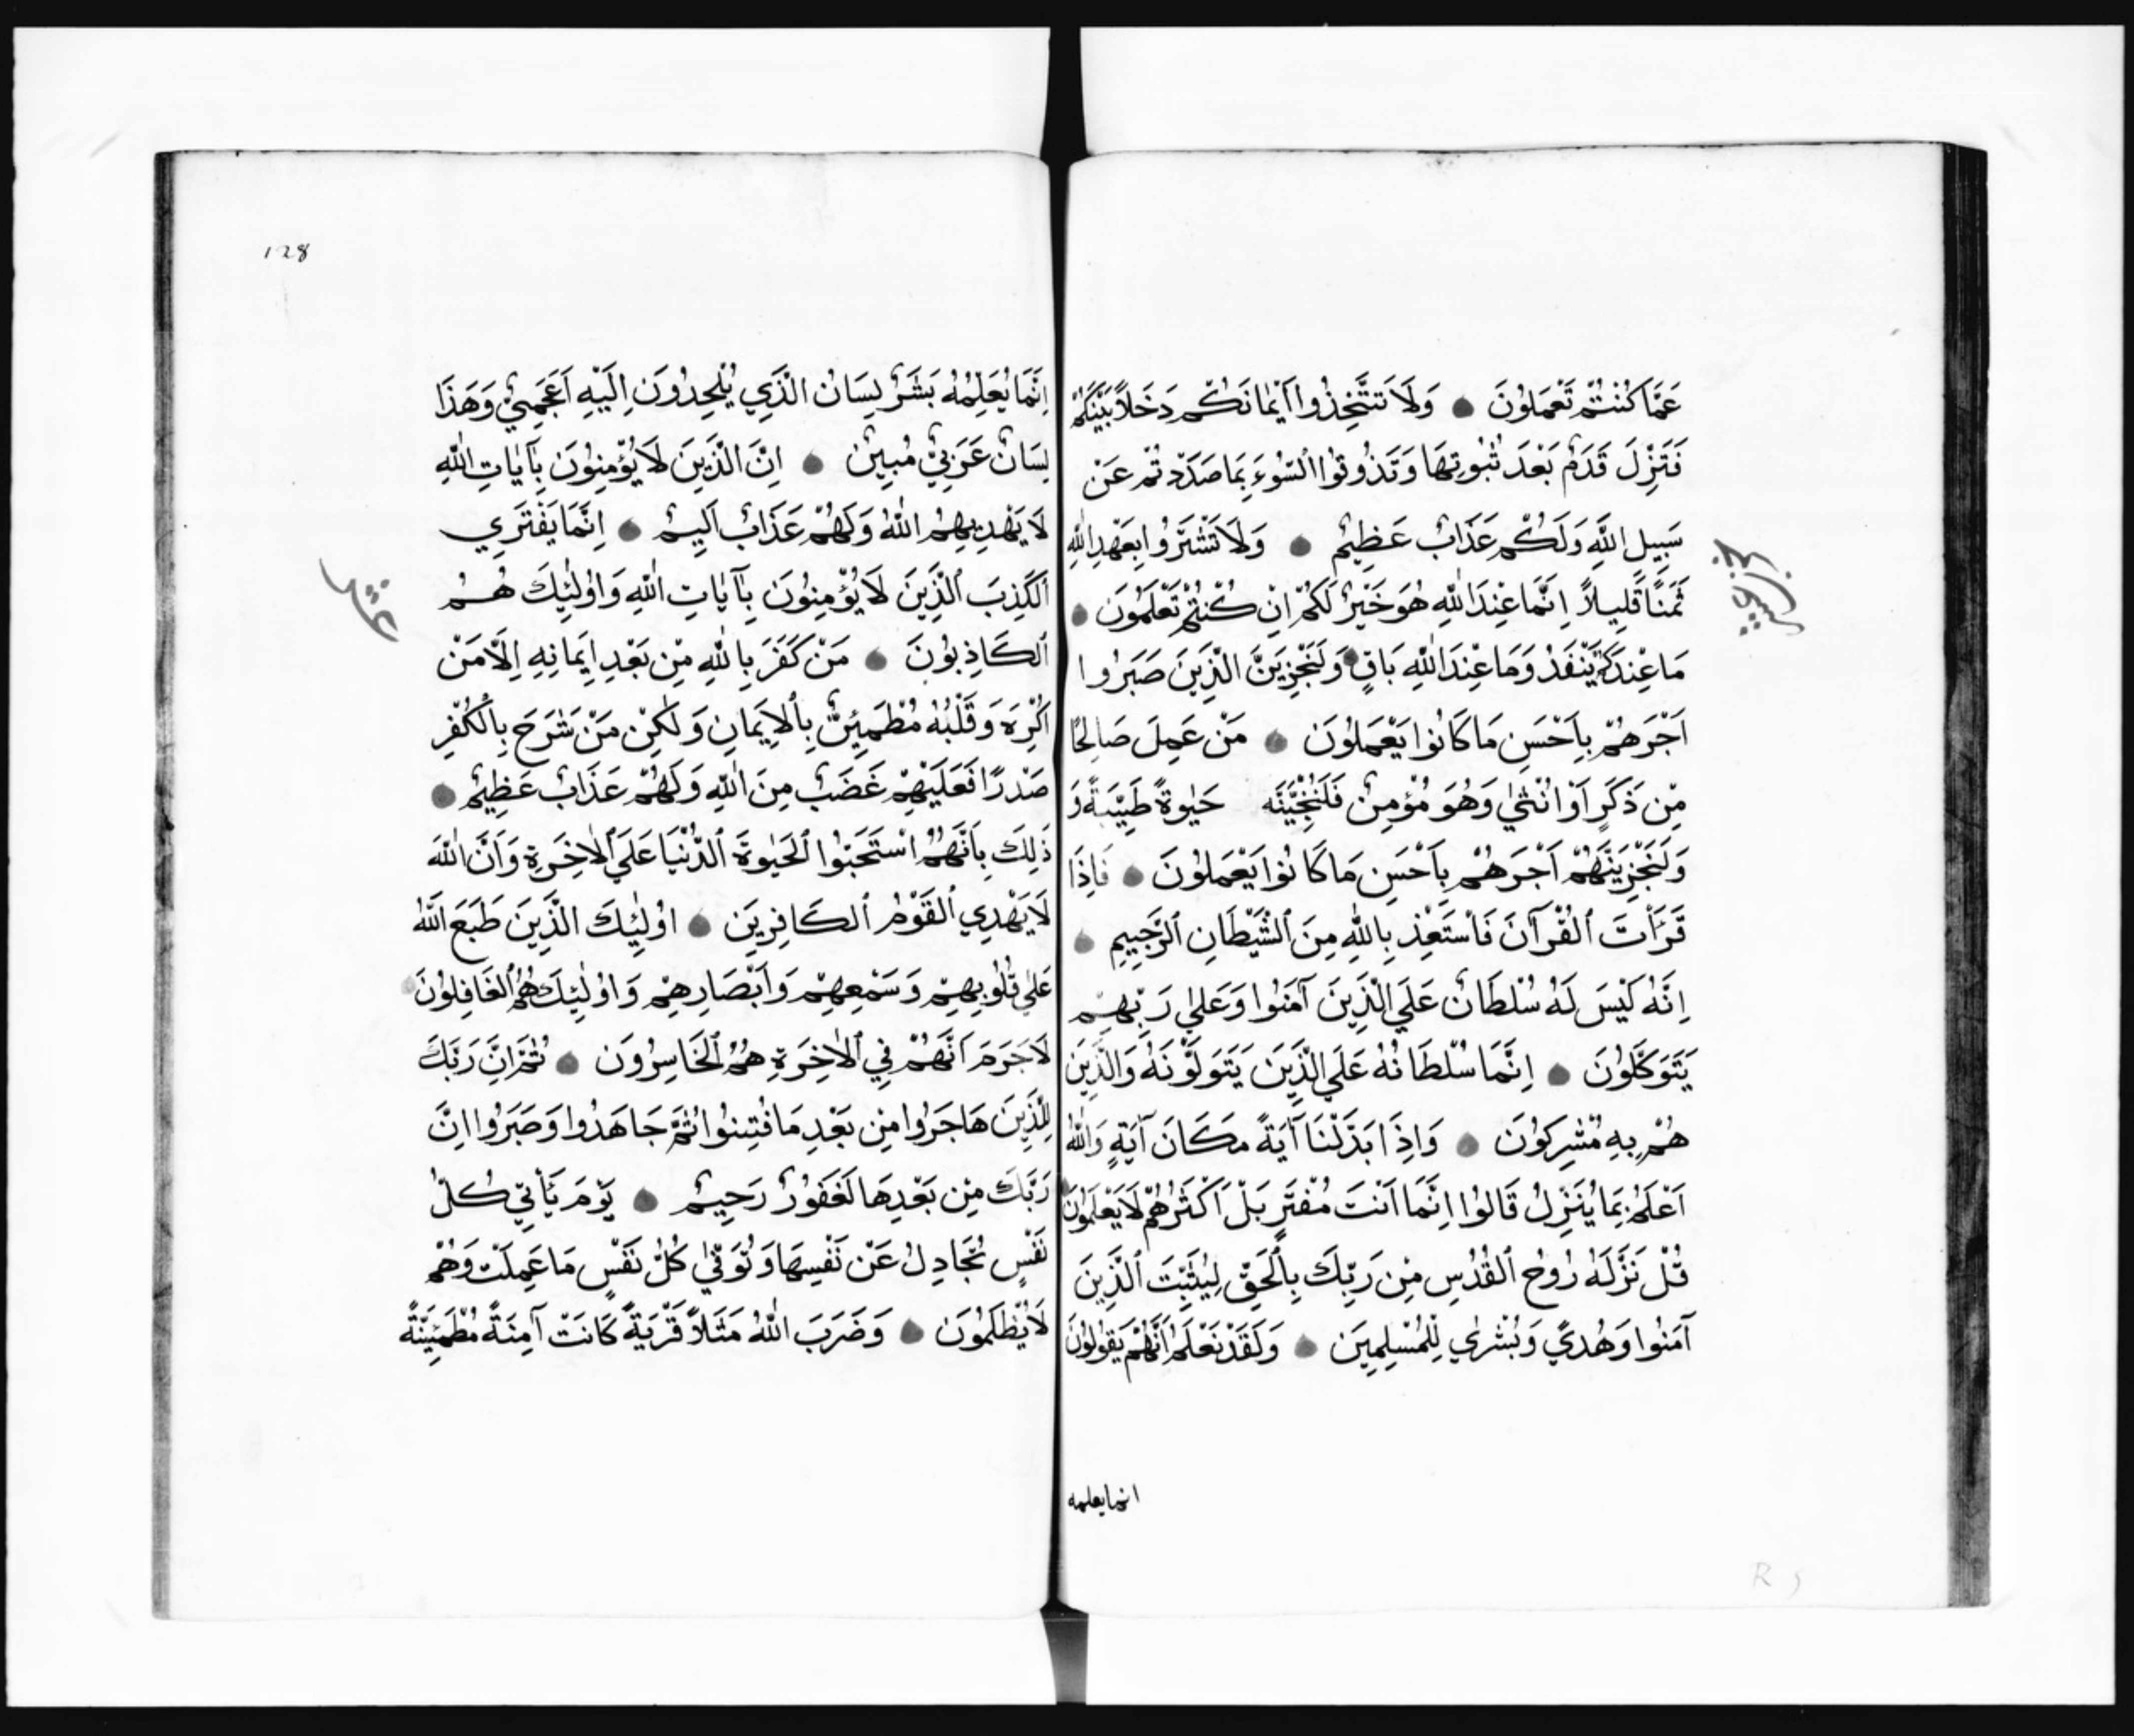 عَمَّا كُنْتُمْ تَعْمَلُونَ وَلَا تَتَّخِذُوا اَيْمَانَكُمْ دَخَلًا بَيْنَكُمْ
فَتَزِلَّ قَدَمٌ بَعْدَ ثُبُوتِهَا وَتَذُوقُوا السُّوءَ بِمَا صَدَدْتُمْ عَنْ
سَبِيلِ اللَّهِ وَلَكُمْ عَذَابٌ عَظِيمٌ وَلَا تَشْتَرُوا بِعَهْدِ اللَّهِ
ثَمَنًا قَلِيلًا اِنَّمَا عِنْدَ اللَّهِ هُوَ خَيْرٌ لَكُمْ اِنْ كُنْتُمْ تَعْلَمُونَ
مَا عِنْدَكُمْ يَنْفَدُ وَمَا عِنْدَ اللَّهِ بَاقٍ وَلَنَجْزِيَنَّ الَّذِينَ صَبَرُوا
اَجْرَهُمْ بِاَحْسَنِ مَا كَانُوا يَعْمَلُونَ مَنْ عَمِلَ صَالِحًا
مِنْ ذَكَرٍ اَوْ اُنْثٰي وَهُوَ مُؤْمِنٌ فَلَنُحْيِيَنَّه حَيٰوةً طَيِّبَةً وَ
وَلَنَجْزِيَنَّهُمْ اَجْرَهُمْ بِاَحْسَنِ مَا كَانُوا يَعْمَلُونَ فَاِذَا
قَرَأْتَ الْقُرْآنَ فَاسْتَعِذْ بِاللَّهِ مِنَ الشَّيْطَانِ الرَّجِيمِ
اِنَّهُ لَيْسَ لَهُ سُلْطَانٌ عَلَي الَّذِينَ آمَنُوا وَعَلٰي رَبِّهِمْ
يَتَوَكَّلُونَ اِنَّمَا سُلْطَانُهُ عَلَي الَّذِينَ يَتَوَلَّوْنَهُ وَالَّذِينَ
هُمْ بِهِ مُشْرِكُونَ وَاِذَا بَدَّلْنَا آيَةً مَكَانَ آيَةٍ وَاللَّهُ
اَعْلَمُ بِمَا يُنَزِّلُ قَالُوا اِنَّمَا اَنْتَ مُفْتَرٍ بَلْ اَكْثَرُهُمْ لَا يَعْلَمُونَ
قُلْ نَزَّلَهُ رُوحُ الْقُدُسِ مِنْ رَبِّكَ بِالْحَقِّ لِيُثَبِّتَ الَّذِينَ
آمَنُوا وَهُدًي وَبُشْرٰي لِلْمُسْلِمِينَ وَلَقَدْ نَعْلَمُ اَنَّهُمْ يَقُولُونَ
انما يعلمه
128
اِنَّمَا يُعَلِّمُهُ بَشَرٌ لِسَانُ الَّذِي يُلْحِدُونَ اِلَيْهِ اَعْجَمِيٌّ وَهَذَا
لِسَانٌ عَرَبِيٌّ مُبِينٌ اِنَّ الَّذِينَ لَا يُؤْمِنُونَ بِآيَاتِ اللَّهِ
لَا يَهْدِيهِمُ اللَّهُ وَلَهُمْ عَذَابٌ اَلِيمٌ اِنَّمَا يَفْتَرِي
الْكَذِبَ الَّذِينَ لَا يُؤْمِنُونَ بِآيَاتِ اللَّهِ وَاُولٰئِكَ هُمُ
الْكَاذِبُونَ مَنْ كَفَرَ بِاللَّهِ مِنْ بَعْدِ اِيمَانِهِ اِلَّا مَنْ
اُكْرِهَ وَقَلْبُهُ مُطْمَئِنٌّ بِالْاِيمَانِ وَلٰكِنْ مَنْ شَرَحَ بِالْكُفْرِ
صَدْرًا فَعَلَيْهِمْ غَضَبٌ مِنَ اللَّهِ وَلَهُمْ عَذَابٌ عَظِيمٌ
ذٰلِكَ بِاَنَّهُمُ اسْتَحَبُّوا الْحَيٰوةَ الدُّنْيَا عَلَي الْاٰخِرَةِ وَاَنَّ اللَّهَ
لَا يَهْدِي الْقَوْمَ الْكَافِرِينَ اُولٰئِكَ الَّذِينَ طَبَعَ اللَّهُ
عَلٰي قُلُوبِهِمْ وَسَمْعِهِمْ وَاَبْصَارِهِمْ وَاُولٰئِكَ هُمُ الْغَافِلُونَ
لَا جَرَمَ اَنَّهُمْ فِي الْاٰخِرَةِ هُمُ الْخَاسِرُونَ ثُمَّ اِنَّ رَبَّكَ
لِلَّذِينَ هَاجَرُوا مِنْ بَعْدِ مَا فُتِنُوا ثُمَّ جَاهَدُوا وَصَبَرُوا اِنَّ
رَبَّكَ مِنْ بَعْدِهَا لَغَفُورٌ رَحِيمٌ يَوْمَ يَأْتِي كُلُّ
نَفْسٍ تُجَادِلُ عَنْ نَفْسِهَا وَتُوَفّٰي كُلُّ نَفْسٍ مَا عَمِلَتْ وَهُمْ
لَا يُظْلَمُونَ وَضَرَبَ اللَّهُ مَثَلًا قَرْيَةً كَانَتْ آمِنَةً مُطْمَئِنَّةً